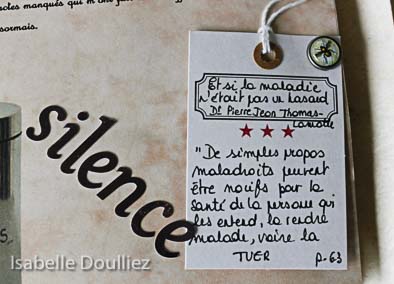 oles manqués qui m'ont fa
sormais.
silence
Et si la maladie
n'était pas un hasard
Dr Pierre Jean Thomas-
Lamotte
"De simples propos
maladroits peuvent
être nocifs pour la
santé de la personne qui
les entend, la rendre
malade, voire la
TUER p-63
S.
Isabelle Doulliez